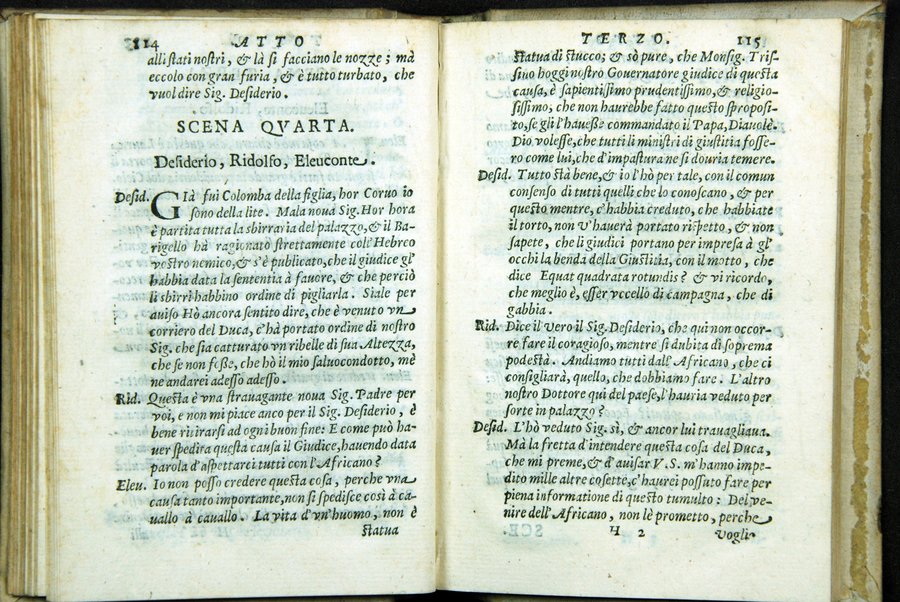 114 ATTO
alli stati nostri, & là si facciano le nozze; mà
eccolo con gran furia, & è tutto turbato, che
vuol dire Sig. Desiderio.
SCENA QVARTA.
Desiderio, Ridolfo, Eleuconte.
Desid. GIà fui Colomba della figlia, hor Coruo io
sono della lite. Mala noua Sig. Hor hora
è partita tutta la sbirraria del palazzo, & il Ba-
rigello hà ragionato strettamente coll'Hebreo
vostro nemico, & s'è publicato, che il giudice gl'
habbia data la sententia à fauore, & che perciò
li sbirri habbino ordine di pigliarla. Siale per
auiso Hò ancora sentito dire, che è venuto vn
corriero del Duca, c'hà portato ordine di nostro
Sig. che sia catturato vn ribelle di sua Altezza,
che se non fosse, che hò il mio saluocondotto, mè
ne andarei adesso adesso.
Rid. Questa è vna strauagante noua Sig. Padre per
voi, e non mi piace anco per il Sig. Desiderio, è
bene ritirarsi ad ogni buon fine: E come può ha-
uer spedita questa causa il Giudice, hauendo data
parola d'aspettarci tutti con l'Africano?
Eleu. Io non posso credere questa cosa, perche vna
causa tanto importante, non si spedisce così à ca-
uallo à cauallo. La vita d'vn'huomo, non è
statua
TERZO. 115
statua di stucco; & sò pure, che Monsig. Tris-
sino hoggi nostro Gouernatore giudice di questa
causa, è sapientissimo prudentissimo, & religio-
sissimo, che non haurebbe fatto questo sproposi-
to, se gli l'hauesse commandato il Papa, Diauolè.
Dio volesse, che tutti li ministri di giustitia fosse-
ro come lui, che d'impastura ne si douria temere.
Desid. Tutto stà bene, & io l'hò per tale, con il comun
consenso di tutti quelli che lo conoscano, & per
questo mentre, c'habbia creduto, che habbiate
il torto, non v'hauerà portato rispetto, & non
sapete, che li giudici portano per impresa à gl'
occhi la benda della Giustitia, con il motto, che
dice Equat quadrata rotundis? & vi ricordo,
che meglio è, esser vccello di campagna, che di
gabbia.
Rid. Dice il vero il Sig. Desiderio, che qui non occor-
re fare il coragioso, mentre si dubita di soprema
podestà. Andiamo tutti dall'Africano, che ci
consigliarà, quello, che dobbiamo fare. L'altro
nostro Dottore qui del paese, l'hauria veduto per
sorte in palazzo?
Desid. L'hò veduto Sig. sì, & ancor lui trauagliaua.
Mà la fretta d'intendere questa cosa del Duca,
che mi preme, & d'auisar V. S. m'hanno impe-
dito mille altre cosette, c'haurei possuto fare per
piena informatione di questo tumulto: Del ve-
nire dell'Africano, non lè prometto, perche
H 2 vogli